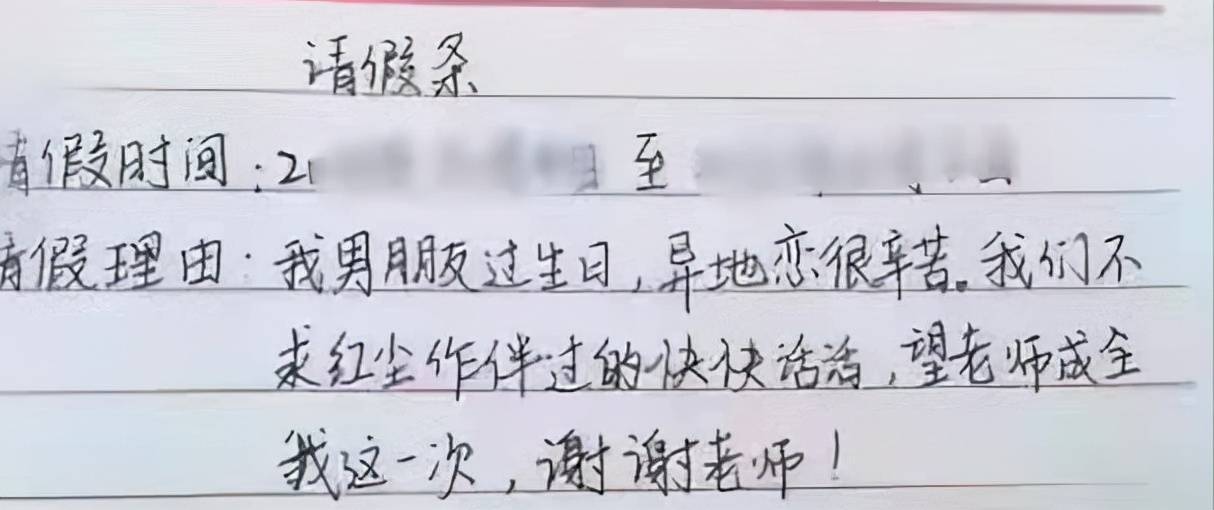 请假条
请假时间:2 至
请假理由:我男朋友过生日,异地恋很辛苦。我们不
求红尘作伴过的快快活活,望老师成全
我这一次,谢谢老师!